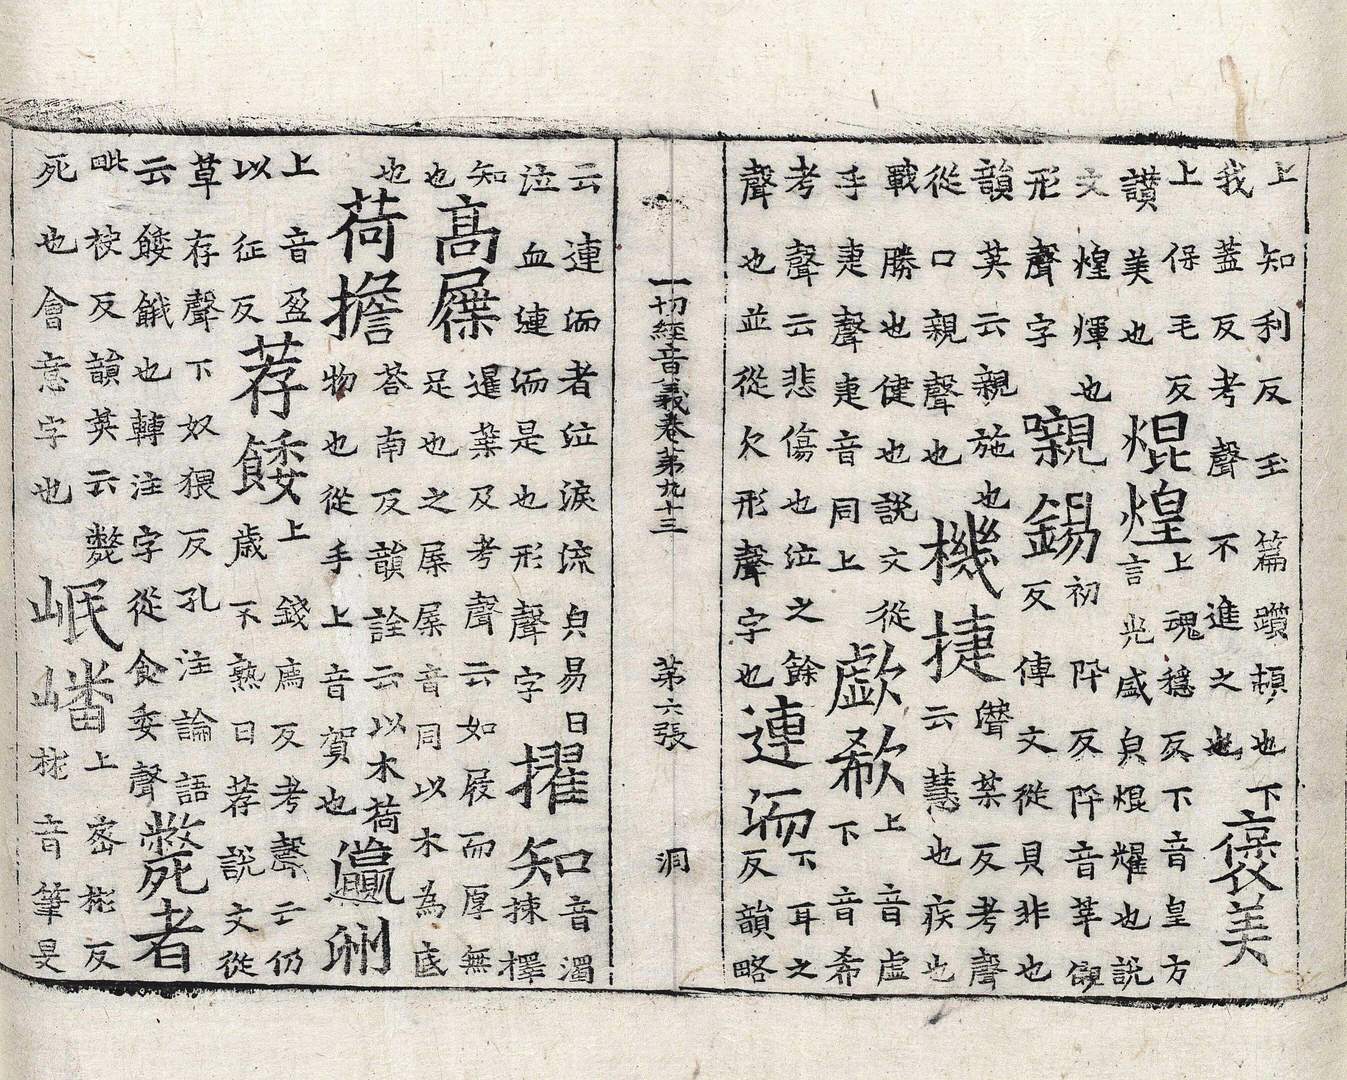 上知利反玉篇躓頓也下
我蓋反考聲不進之也
褒美
上保毛反
讃美也
焜煌
上魂穩反下音皇方
言光盛皃焜耀也説
文煌煇也
形聲字
嚫錫
初阠反阠音莘儭
反傳文從貝非也
韻英云親施也
從口親聲也
機捷
潛葉反考聲
云慧也疾也
戰勝也健也説文從
手疌聲疌音同上
歔欷
上音虛
下音希
考聲云悲傷也泣之餘
聲也並從欠形聲字也
連洏
下耳之
反韻略
一切經音義卷第九十三 第六張 洞
云連洏者泣淚流皃易曰
泣血漣洏是也形聲字
擢知
音濁
揀擇
知
也
高屧
暹葉反考聲云如屐而厚無
足也之屧屧音同以木為底
也
荷擔
荅南反韻詮云以木荷
物也從手上音賀也
瀛洲
上音盈
以征反
荐餧
上錢薦反考聲云仍
歲不熟曰荐説文從
草存聲下奴猥反孔注論語
云餧餓也轉注字從食委聲
斃者
毗袂反韻英云斃
死也會意字也
岷嶓
上密彬反
彬音筆旻